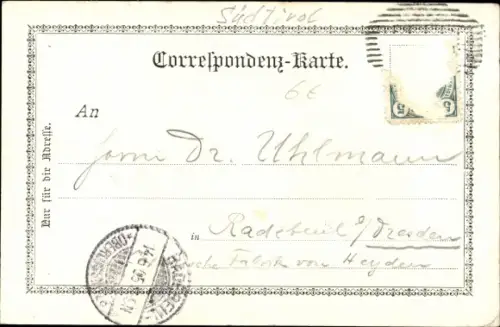 Südtirol
Correspondenz-Karte.
6€
5 5
An
Herrn Dr. Uhlmann
Nur für die Adresse.
in Radebeul b/Dresden
Fabrik von Heyden